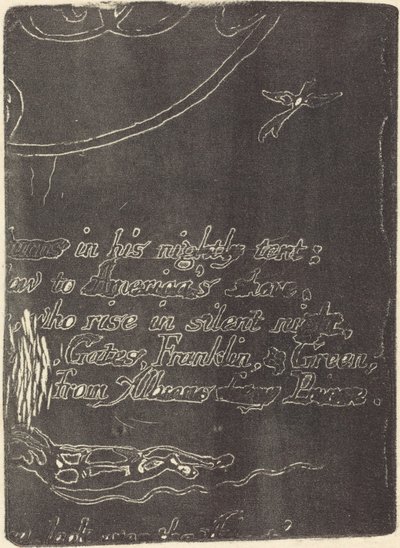 burns in his nightly tent:
to America's shore:
who rise in silent night,
Gates, Franklin, & Green;
From Albions fiery Prince.